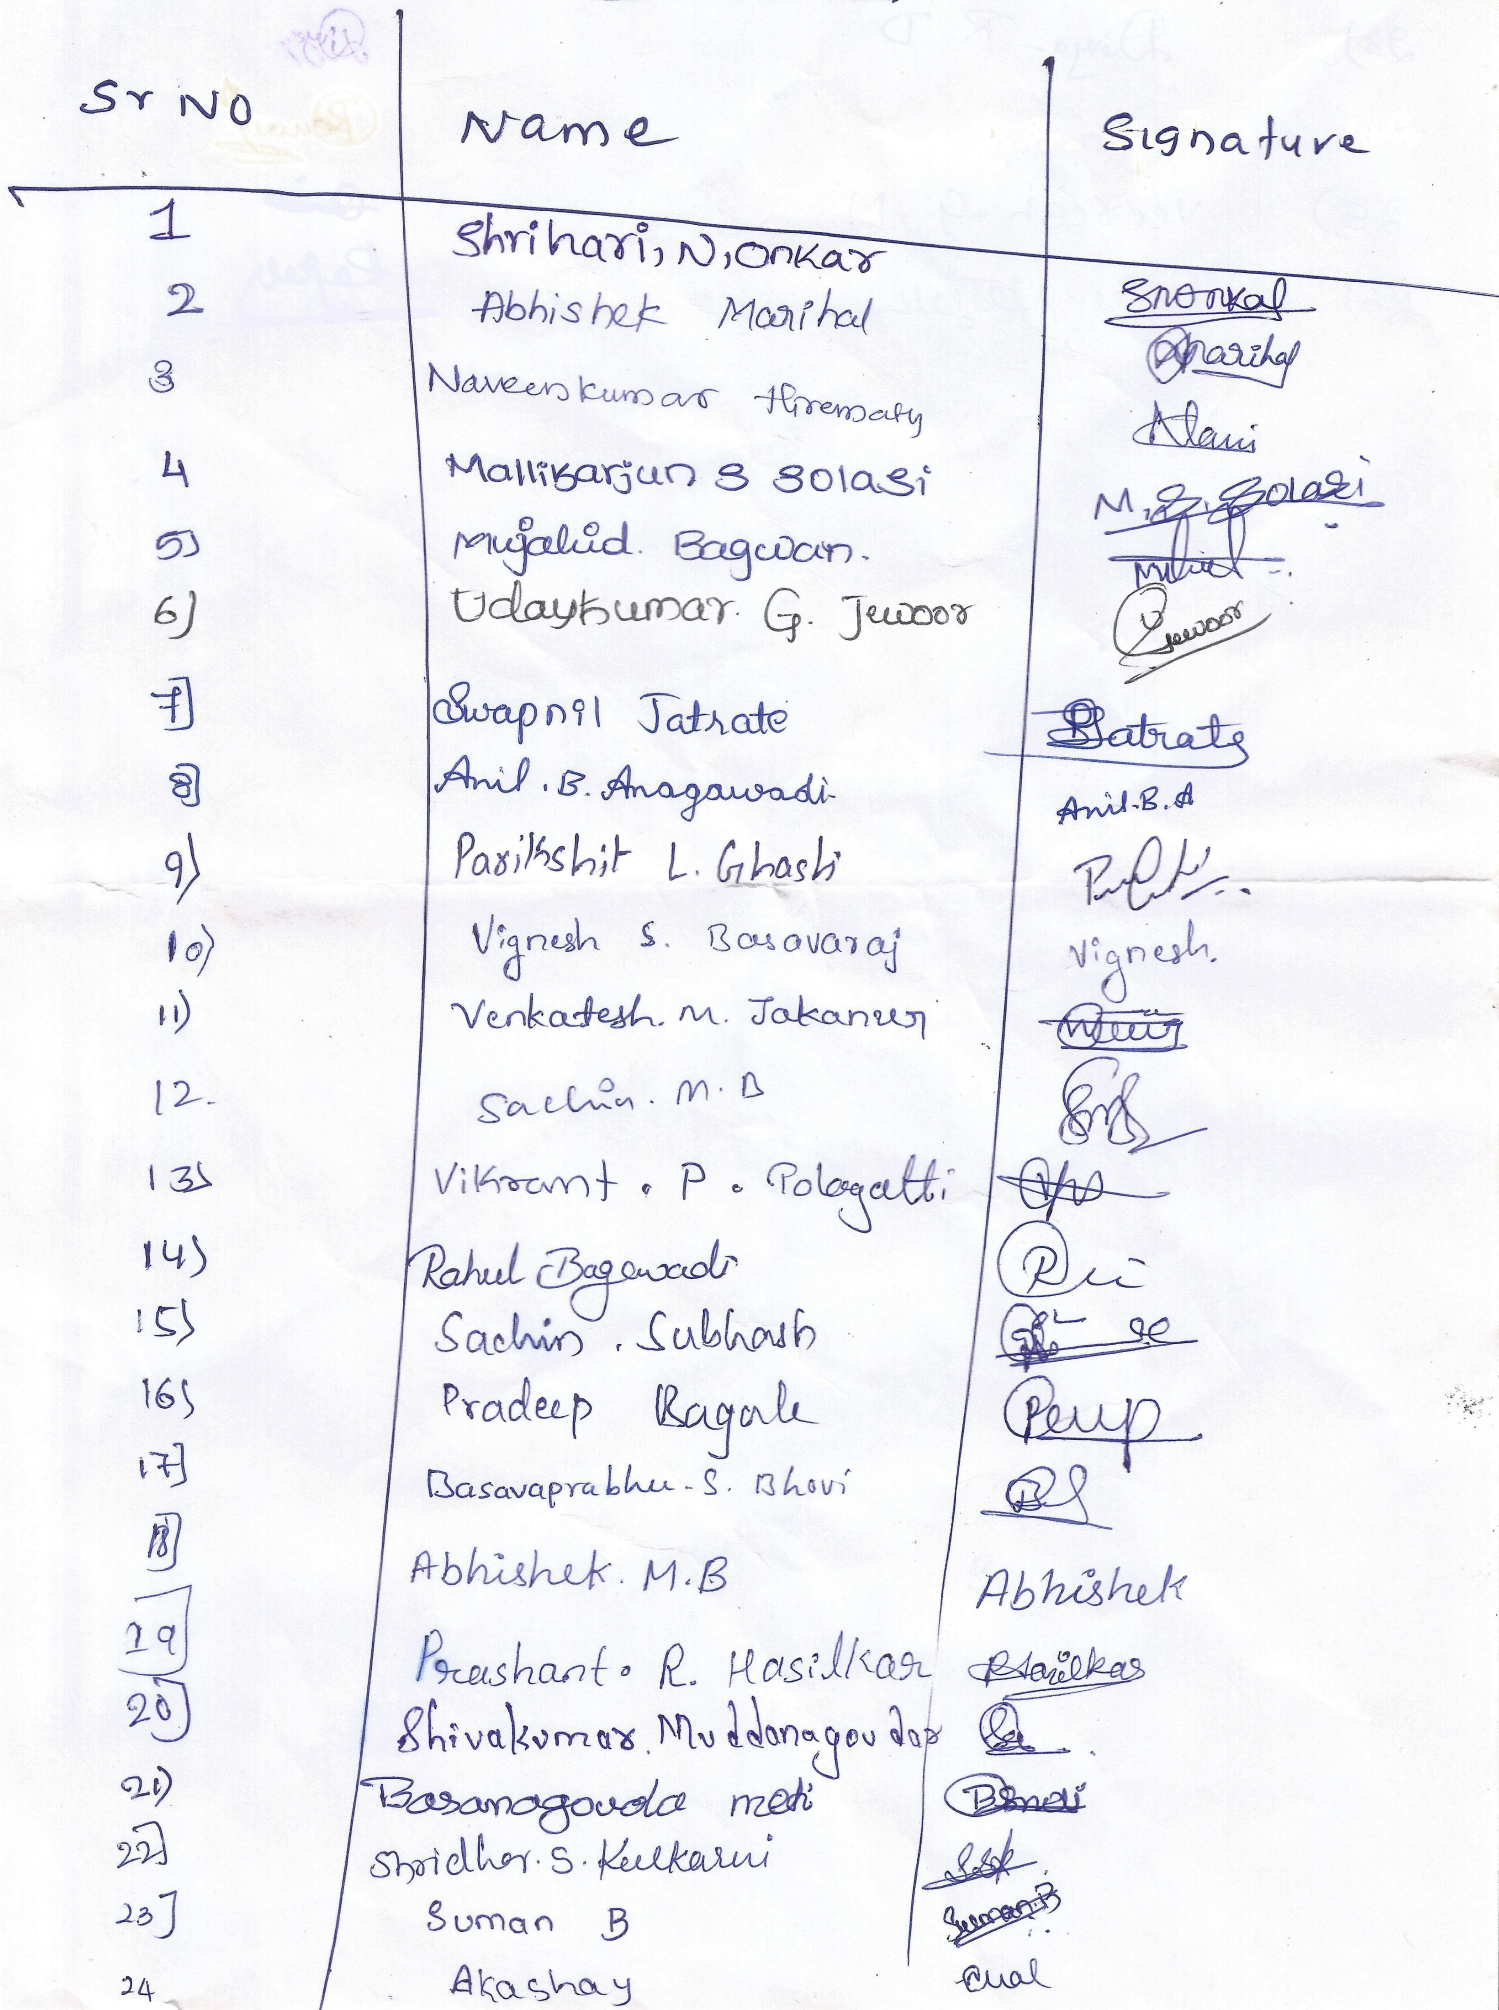 Sr No Name Signature
1 Shrihari, N, Onkar SnOnkal
2 Abhishek Marihal Marihal
3 Naveenkumar Hiremath
4 Mallikarjun S Solasi M.S.Solasi
5) Mujahid. Bagwan.
6) Udaykumar. G. Jewoor Jewoor
7] Swapnil Jatrate Jatrate
8] Anil. B. Anagawadi Anil.B.A
9) Parikshit L. Ghasti
10) Vignesh S. Basavaraj Vignesh.
11) Venkatesh. M. Jakanur
12. Sachin. M. B
13) Vikrant. P. Pologatti
14) Rahul Bagewadi
15) Sachin. Subhash
16) Pradeep Bagale
17] Basavaprabhu. S. Bhovi
18] Abhishek. M.B Abhishek
19 Prashant. R. Hasilkar RHasilkar
20] Shivakumar. Muddanagoudar
21) Basanagouda meti
22] Shridhar. S. Kulkarni SSK
23] Suman B Suman.B
24 Akashay